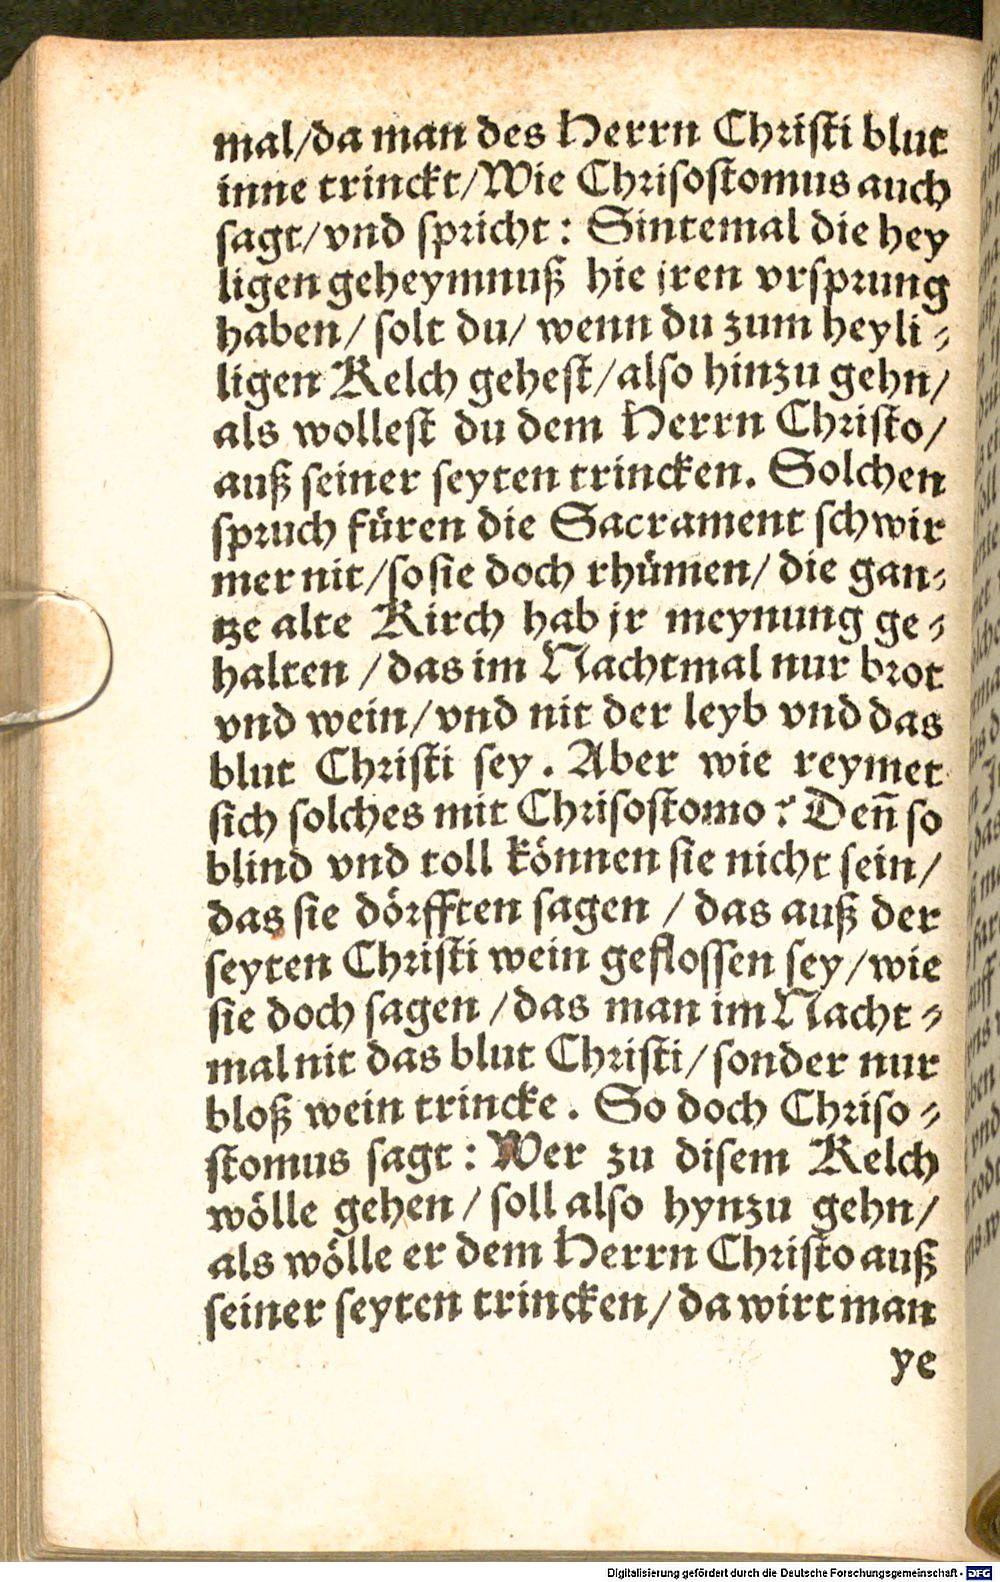 mal/da man des Herrn Christi blut
inne trinckt/Wie Chrisostomus auch
sagt/vnd spricht: Sintemal die hey
ligen geheymnuß hie jren vrsprung
haben/ solt du/ wenn du zum heyli⸗
ligen Kelch gehest/also hinzu gehn/
als wollest du dem Herrn Christo/
auß seiner seyten trincken. Solchen
spruch füren die Sacrament schwir
mer nit/so sie doch rhümen/ die gan⸗
tze alte Kirch hab jr meynung ge⸗
halten /das im Nachtmal nur brot
vnd wein/vnd nit der leyb vnd das
blut Christi sey. Aber wie reymet
sich solches mit Chrisostomo? Deñ so
blind vnd toll können sie nicht sein/
das sie dörfften sagen / das auß der
seyten Christi wein geflossen sey/wie
sie doch sagen /das man im Nacht⸗
mal nit das blut Christi/ sonder nur
bloß wein trincke. So doch Chriso⸗
stomus sagt: Wer zu disem Kelch
wölle gehen/ soll also hynzu gehn/
als wölle er dem Herrn Christo auß
seiner seyten trincken/ da wirt man
ye
Digitalisierung gefördert durch die Deutsche Forschungsgemeinschaft - DFG